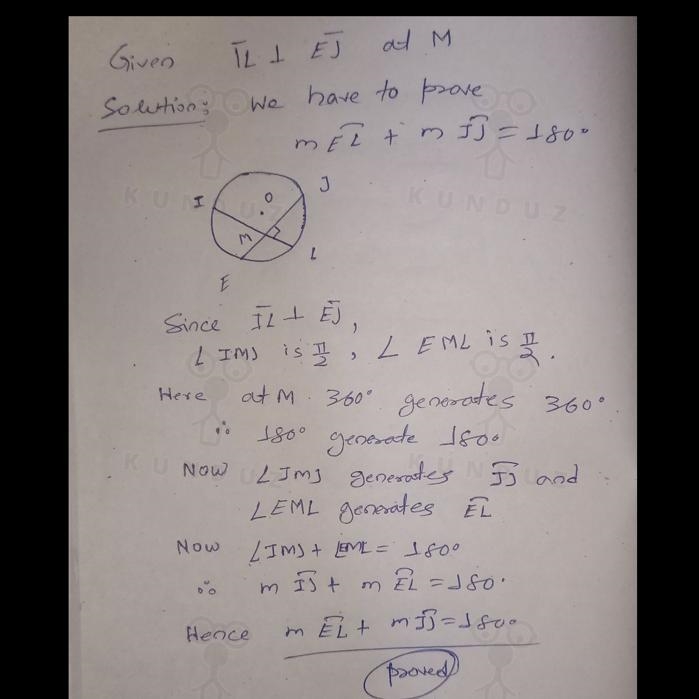 Given I̅L̅ ⊥ E̅J̅ at M
Solution: We have to prove
m E͡L + m I͡J = 180°
I
J
O
M
L
E
KUNDUZ
KUNDUZ
Since I̅L̅ ⊥ E̅J̅,
∠IMJ is π/2, ∠EML is π/2.
Here at M 360° generates 360°
∴ 180° generate 180°
KUNDUZ
KUNDUZ
Now ∠IMJ generates I͡J and
∠EML generates E͡L
Now ∠IMJ + ∠EML = 180°
∴ m I͡J + m E͡L = 180°
Hence m E͡L + m I͡J = 180°
proved